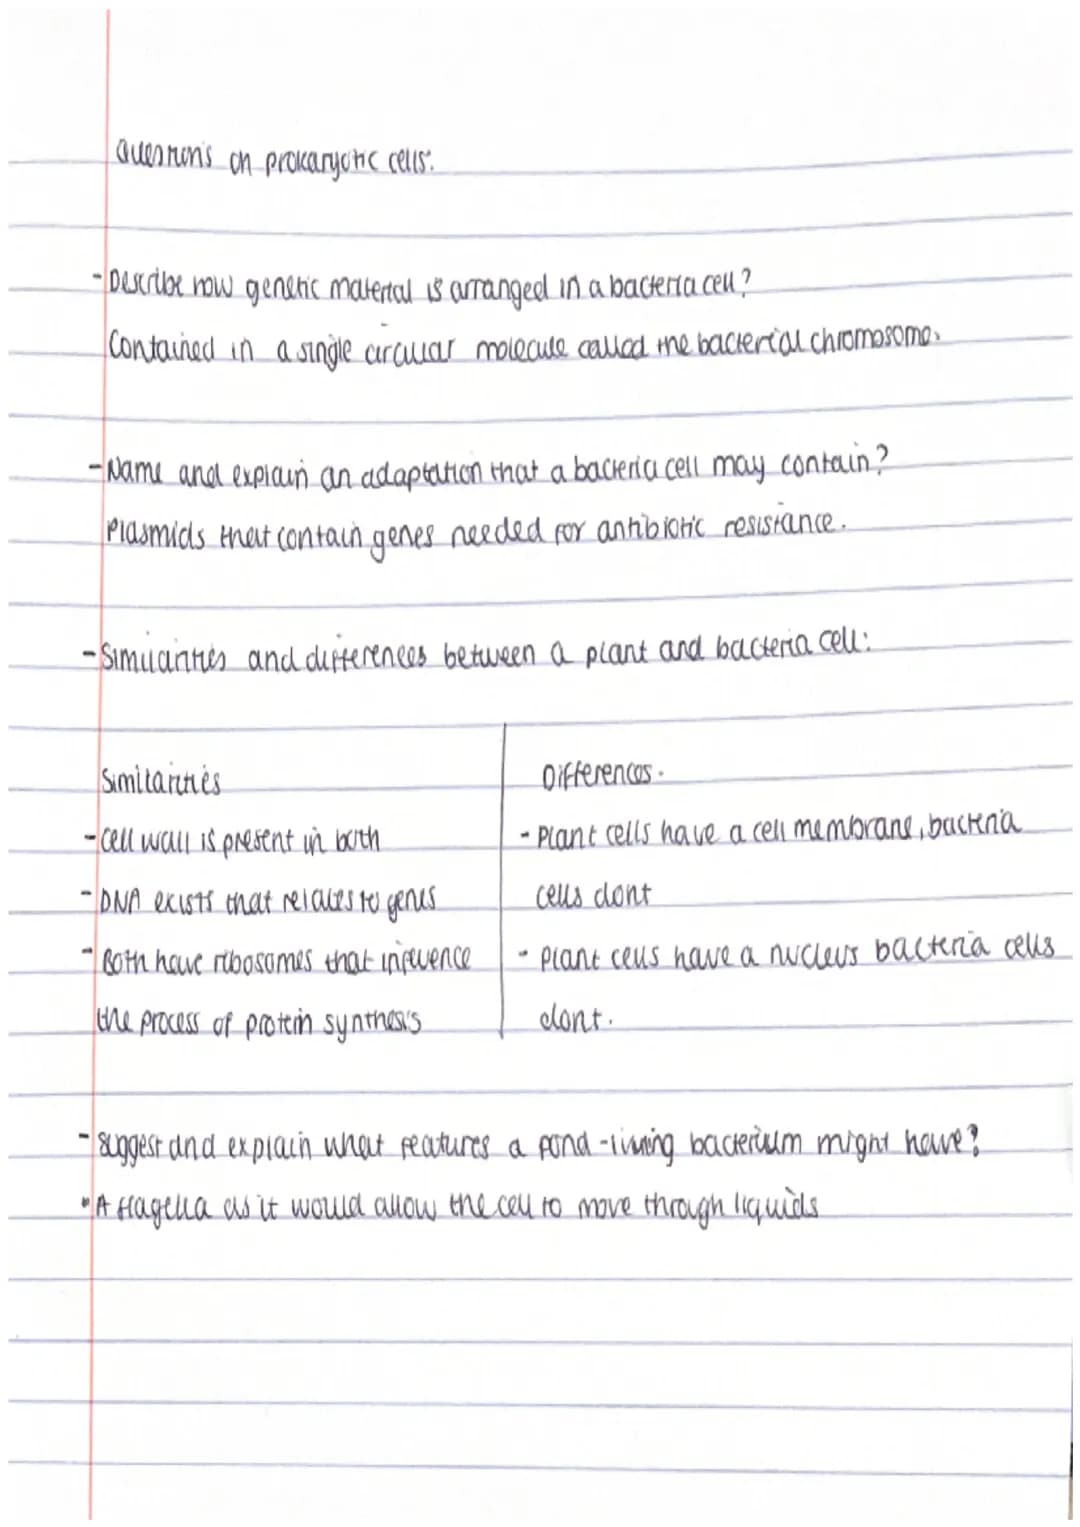 Questions on prokaryotic cells:
- Describe how genetic material is arranged in a bacteria cell?
Contained in a single circular molecule called the bacterial chromosome.
- Name and explain an adaptation that a bacteria cell may contain?
Plasmids that contain genes needed for antibiotic resistance.
- Similarities and differences between a plant and bacteria cell:
Similarities
- Cell wall is present in both
- DNA exists that relates to genes
- Both have ribosomes that influence
the process of protein synthesis
Differences.
- Plant cells have a cell membrane, bacteria
cells dont
- Plant cells have a nucleus bacteria cells
dont.
- Suggest and explain what features a pond-living bacterium might have?
- A flagella as it would allow the cell to move through liquids